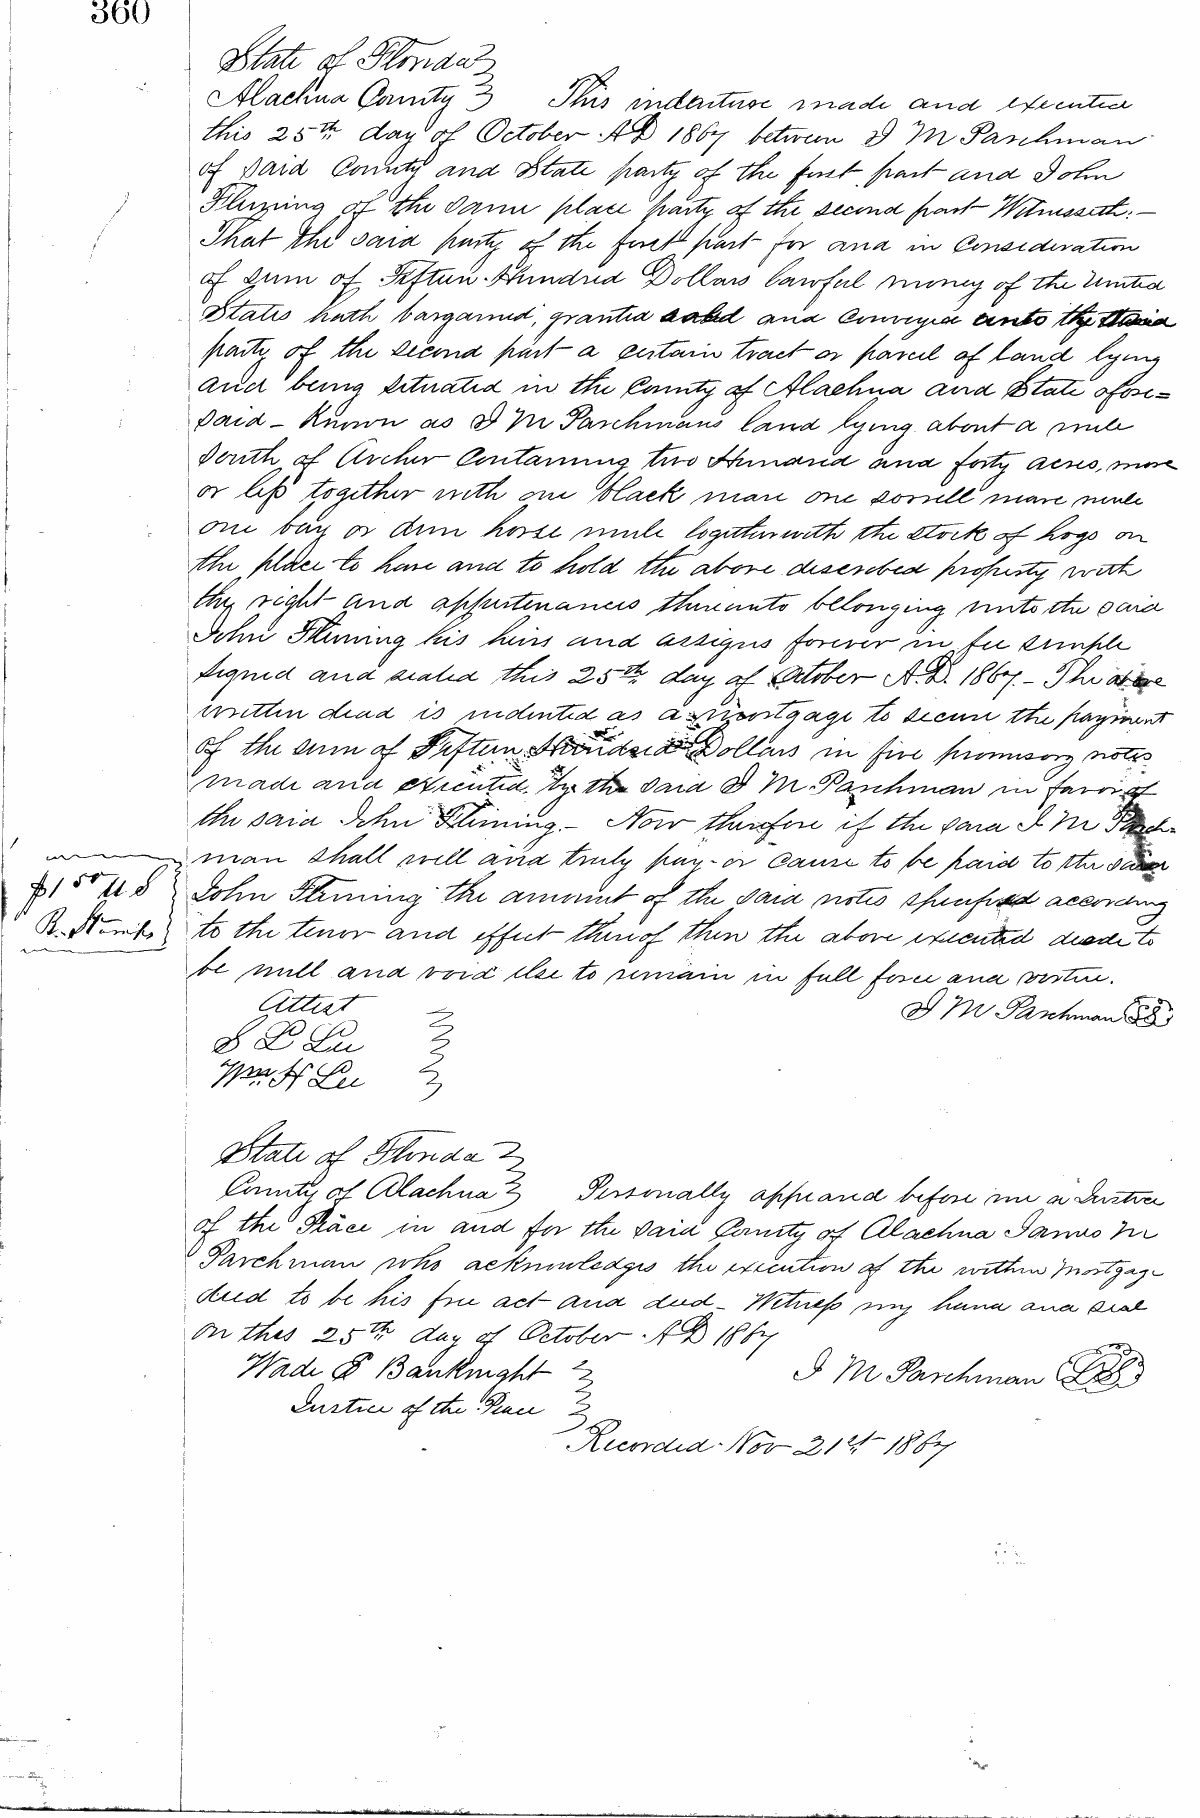 360
State of Florida
Alachua County } This indenture made and executed
this 25th day of October AD 1867 between J M Parchman
of said County and State party of the first part and John
Fleming of the same place party of the second part Witnesseth:—
That the said party of the first part for and in Consideration
of sum of Fifteen Hundred Dollars lawful money of the United
States hath bargained, granted and Conveyed unto the said
party of the second part a certain tract or parcel of land lying
and being situated in the County of Alachua and State afore=
said – Known as J M Parchmans land lying about a mile
South of Archer Containing two Hundred and forty acres, more
or less together with one black mare one sorrell mare mule
one bay or dun horse mule together with the stock of hogs on
the place to have and to hold the above described property with
the right and appertenances thereunto belonging unto the said
John Fleming his heirs and assigns forever in fee simple
Signed and sealed this 25th day of October A.D. 1867. – The above
written dead is indented as a mortgage to secure the payment
of the sum of Fifteen Hundred Dollars in five promisory notes
made and executed by the said J M Parchman in favor of
the said John Fleming. – Now therefore if the said J M Parch-
man shall well and truly pay or cause to be paid to the said
$1 50 U.S
R. Stamps
John Fleming the amount of the said notes specified according
to the tenor and effect thereof then the above executed deede to
be null and void else to remain in full force and vertue.
Attest
J M Parchman
S L Lee
Wm H Lee
State of Florida
County of Alachua } Personally appeared before me a Justice
of the Peace in and for the said County of Alachua James M
Parchman who acknowledges the execution of the within Mortgage
deed to be his free act and deed – Witness my hand and seal
on this 25th day of October AD 1867
Wade Banknight
J M Parchman
Justice of the Peace
Recorded Nov 21st 1867